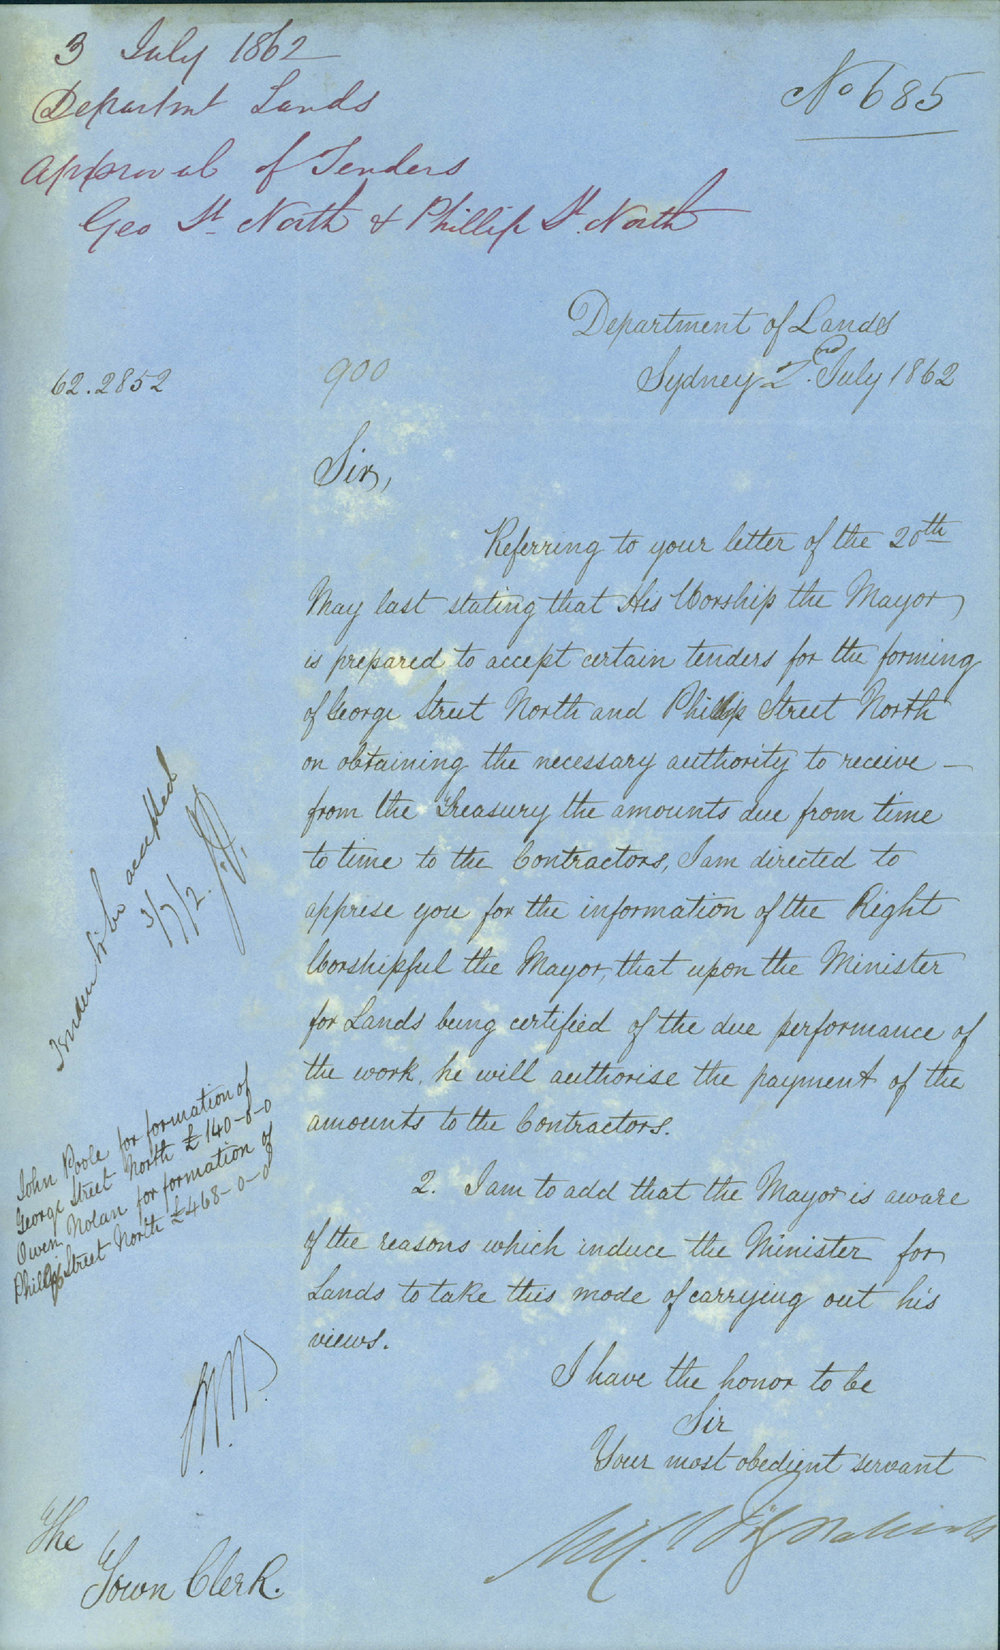 3 July 1862
Departmt Lands
Approval of Tenders
Geo St. North & Phillip St. North
No 685
Department of Lands
62.2852
900
Sydney 2nd. July 1862
Sir,
Referring to your letter of the 20th
May last stating that His Worship the Mayor
is prepared to accept certain tenders for the forming
of George Street North and Phillip Street North
on obtaining the necessary authority to receive –
from the Treasury the amounts due from time
to time to the Contractors, I am directed to
apprise you for the information of the Right
Worshipful the Mayor, that upon the Minister
for Lands being certified of the due performance of
the work, he will authorise the payment of the
amounts to the Contractors.
2. I am to add that the Mayor is aware
of the reasons which induce the Minister for
Lands to take this mode of carrying out his
views.
I have the honor to be
Sir
Your most obedient servant
Tender to be accepted
3/7/2.
John Poole for formation of
George Street North £140-0-0
Owen Nolan for formation of
Phillip Street North £468-0-0
The
Town Clerk.